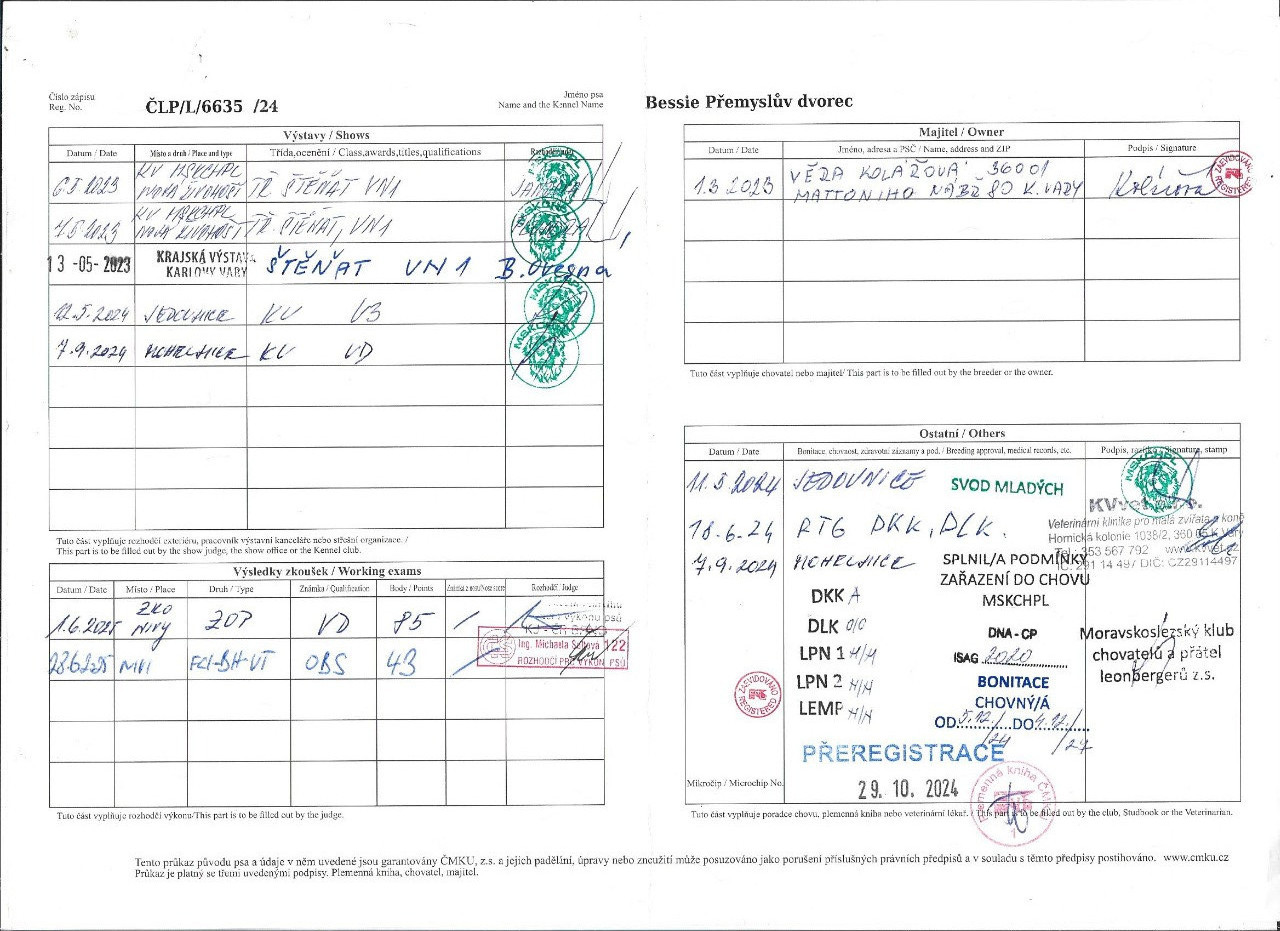 Číslo zápisu
Reg. No.
ČLP/L/6635 /24
Jméno psa
Name and the Kennel Name
Bessie Přemyslův dvorec
Výstavy / Shows
Datum / Date Místo a druh / Place and type Třída,ocenění / Class,awards,titles,qualifications
6.5.2023 KV MSKCHPL TŘ. ŠTĚŇAT VN1
7.5.2023 KV MSKCHPL TŘ. ŠTĚŇAT, VN1
13 -05- 2023 KRAJSKÁ VÝSTAVA KARLOVY VARY ŠTĚŇAT VN 1
12.5.2024 JEDOVNICE KV V3
7.9.2024 MCHELNICE KV VD
MSKCHPL
Tuto část vyplňuje rozhodčí exteriéru, pracovník výstavní kanceláře nebo střešní organizace. /
This part is to be filled out by the show judge, the show office or the Kennel club.
Výsledky zkoušek / Working exams
Datum / Date Místo / Place Druh / Type Známka / Qualification Body / Points Rozhodčí / Judge
1.6.2025 ZKO NIVY ZOP VD 85
28.6.2025 NIVY FCI-BH-VT OBS 43
Ing. Michaela 122
ROZHODČÍ PRO VÝKON PSŮ
Tuto část vyplňuje rozhodčí výkonu/This part is to be filled out by the judge.
Majitel / Owner
Datum / Date Jméno, adresa a PSČ / Name, address and ZIP Podpis / Signature
1.3.2023 VĚRA KOLÁŘOVÁ 36001
MATTONIHO NÁBŘ 80 K. VARY Kolářová
ZAEVIDOVÁNO REGISTERED
Tuto část vyplňuje chovatel nebo majitel/ This part is to be filled out by the breeder or the owner.
Ostatní / Others
Datum / Date Bonitace, chovnost, zdravotní záznamy a pod. / Breeding approval, medical records, etc. Podpis, razítko / Signature, stamp
11.5.2024 JEDOVNICE SVOD MLADÝCH MSKCHPL
KVvet s.r.o.
Veterinární klinika pro malá zvířata a koně
18.6.24 RTG DKK, DLK. Hornická kolonie 1038/2, 360 05 K.Vary
Tel.: 353 567 792 www.kvvet.cz
IČ: 291 14 497 DIČ: CZ29114497
7.9.2024 MCHELNICE SPLNIL/A PODMÍNKY
ZAŘAZENÍ DO CHOVU
MSKCHPL
DKK A
DLK 0/0
LPN 1 H/H
LPN 2 H/H
LEMP H/H
DNA - CP
ISAG 2020
BONITACE
CHOVNÝ/Á
OD 5.12./24 DO 4.12./27
Moravskoslezský klub
chovatelů a přátel
leonbergerů z.s.
ZAEVIDOVÁNO REGISTERED
PŘEREGISTRACE
Mikročip / Microchip No.
29. 10. 2024
Plemenná kniha ČMKU
1
Tuto část vyplňuje poradce chovu, plemenná kniha nebo veterinární lékař. / This part is to be filled out by the club, Studbook or the Veterinarian.
Tento průkaz původu psa a údaje v něm uvedené jsou garantovány ČMKU, z.s. a jejich padělání, úpravy nebo zneužití může posuzováno jako porušení příslušných právních předpisů a v souladu s těmito předpisy postihováno. www.cmku.cz
Průkaz je platný se třemi uvedenými podpisy. Plemenná kniha, chovatel, majitel.